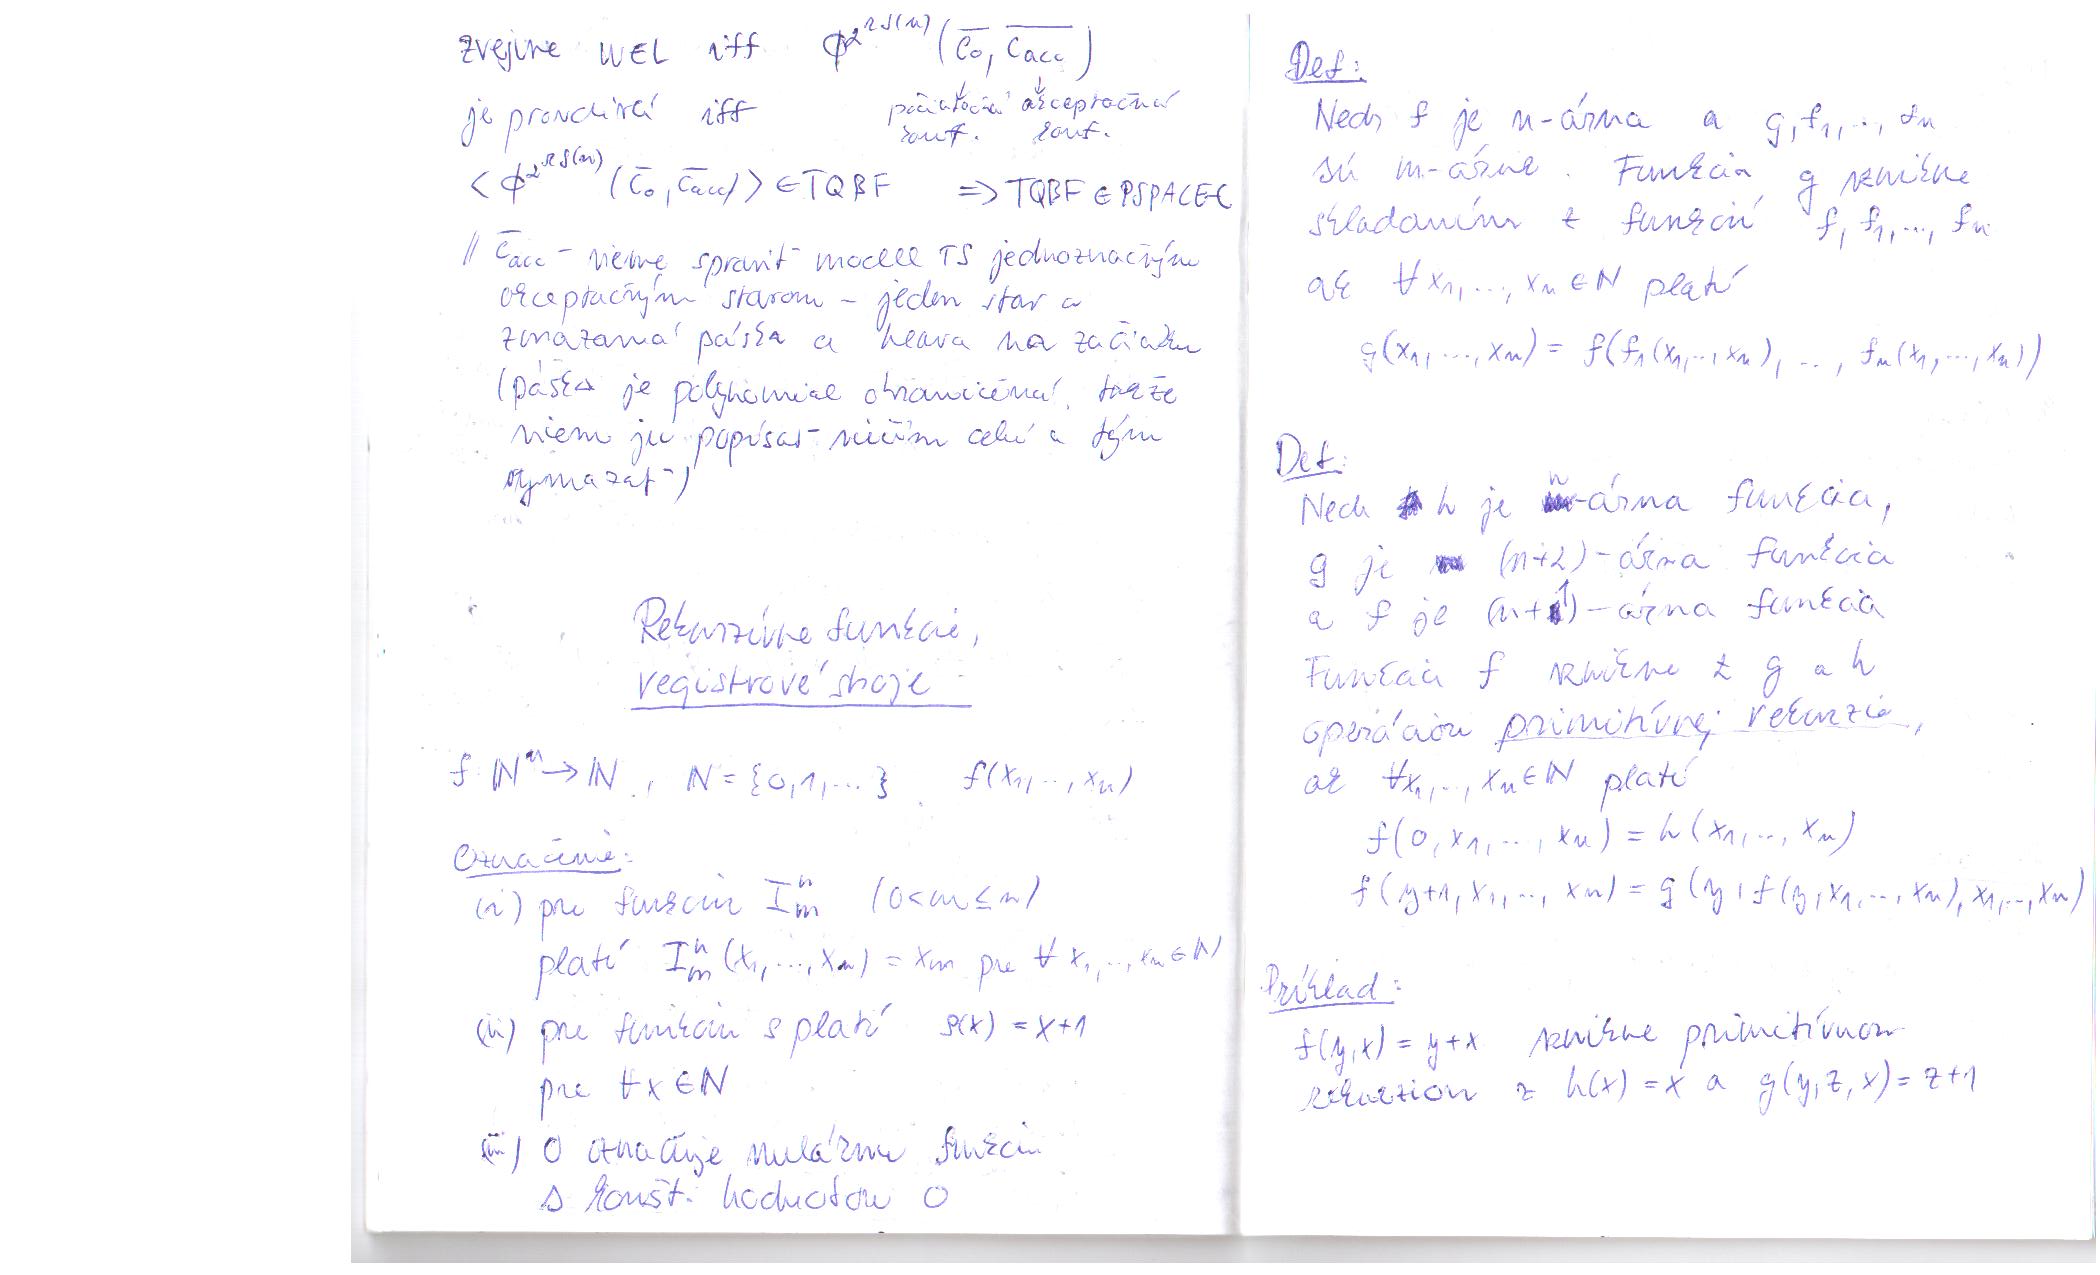 zrejme w∈L iff φ^{2^{rS(n)}}(c̄₀, c̄_acc)
je pravdivá iff
počiatočná konf. akceptačná konf.
<φ^{2^{rS(n)}}(c̄₀, c̄_acc)> ∈ TQBF => TQBF ∈ PSPACE-C
// c̄_acc - vieme spraviť model TS jednoznačným
akceptačným stavom - jeden stav a
zmazaná páska a hlava na začiatku
(páska je polynomial. ohraničená, takže
viem ju popísať niečím celú a tým
vymazať)
Rekurzívne funkcie,
registrové stroje
f: ℕⁿ → ℕ, ℕ = {0,1,...}, f(x₁,..,xₙ)
Označenie:
(i) pre funkciu Iₘⁿ (0<m≤n)
platí Iₘⁿ(x₁,...,xₙ) = xₘ pre ∀ x₁,..,xₙ∈ℕ
(ii) pre funkciu s platí s(x) = x+1
pre ∀x∈ℕ
(iii) 0 označuje nulárnu funkciu
s konšt. hodnotou 0
Def:
Nech f je n-árna a g, f₁,..., fₙ
sú m-árne. Funkcia g vznikne
skladaním z funkcií f, f₁,..., fₙ
ak ∀x₁,...,xₘ∈ℕ platí
g(x₁,...,xₘ) = f(f₁(x₁,..,xₘ),..., fₙ(x₁,...,xₘ))
Def:
Nech h je n-árna funkcia,
g je (n+2)-árna funkcia
a f je (n+1)-árna funkcia
Funkcia f vznikne z g a h
operáciou primitívnej rekurzie,
ak ∀x₁,..,xₙ∈ℕ platí
f(0,x₁,...,xₙ) = h(x₁,..,xₙ)
f(y+1,x₁,..,xₙ) = g(y,f(y,x₁,..,xₙ),x₁,..,xₙ)
Príklad:
f(y,x) = y+x vznikne primitívnou
rekurziou z h(x) = x a g(y,z,x) = z+1